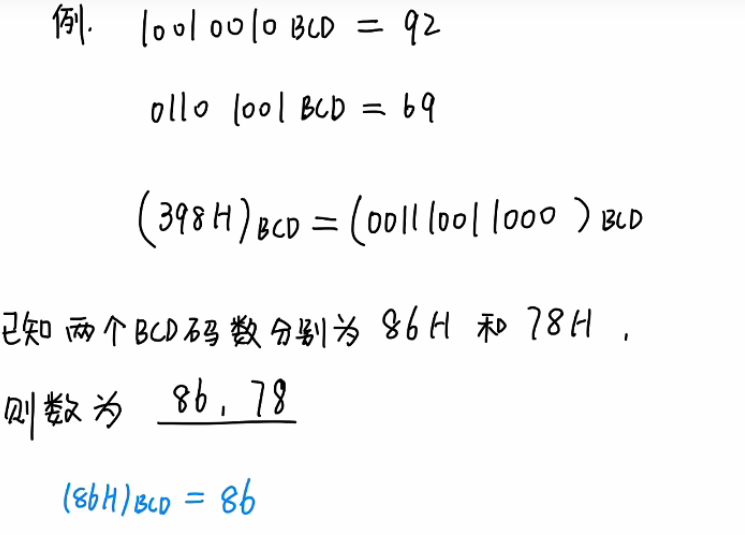 例. 1001 0010 BCD = 92
0110 1001 BCD = 69
(398H)BCD = (0011 1001 1000)BCD
已知两个BCD码数分别为 86H 和 78H,
则数为 86, 78
(86H)BCD = 86